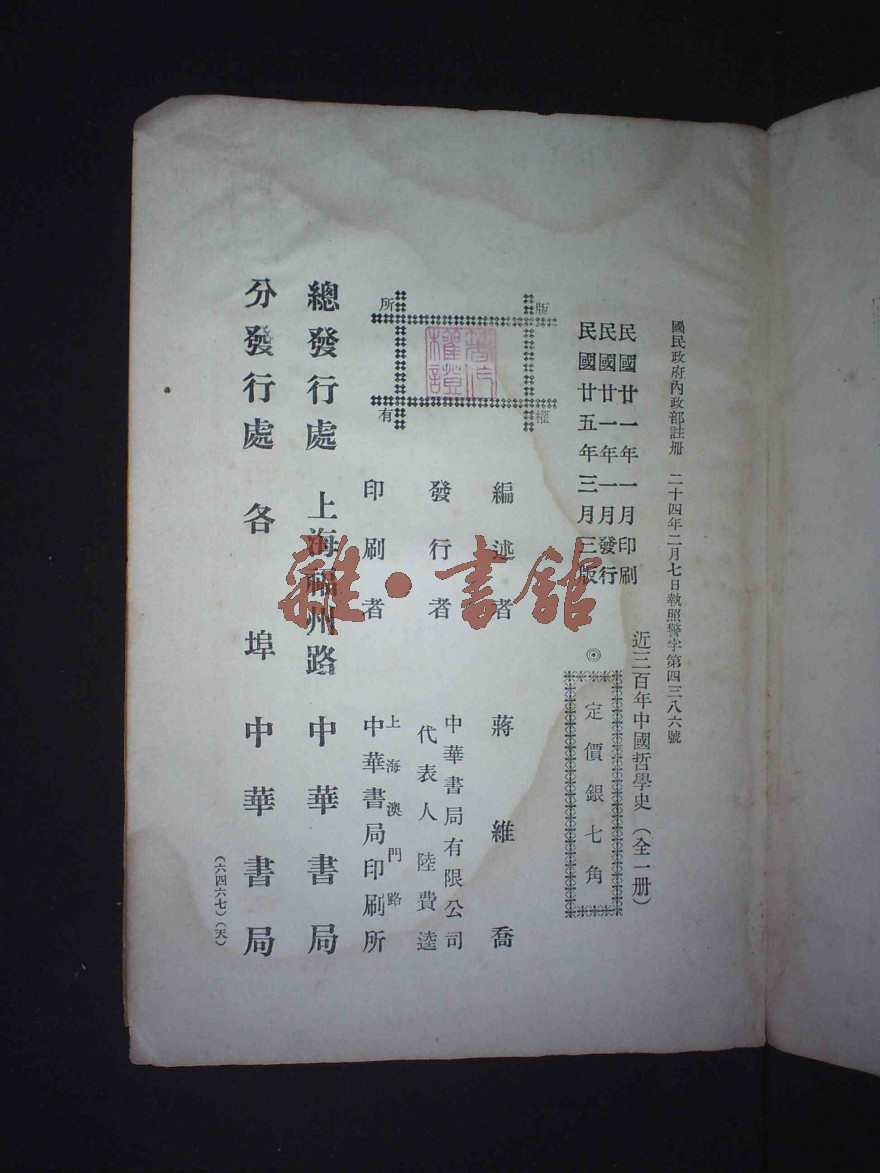 國民政府內政部註冊 二十四年二月七日執照警字第四三八六號
民國廿一年一月印刷
民國廿一年一月發行
民國廿五年三月三版
近三百年中國哲學史 (全一册)
◎ 定價銀七角
版權
所有
編述者 蔣維喬
發行者 中華書局有限公司
代表人 陸費逵
印刷者 上海澳門路
中華書局印刷所
總發行處 上海福州路 中華書局
分發行處 各埠 中華書局
(六四六七)(天)
雜·書館